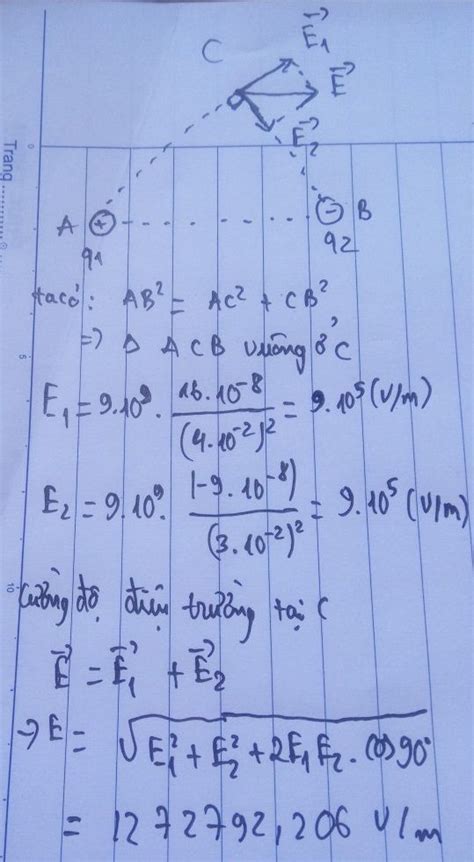 C E⃗₁
E⃗
E⃗₂
Trang
A (+) (-) B
q1 q2
ta có: AB² = AC² + CB²
5
=> Δ ACB vuông ở C
E₁ = 9.10⁹. 16.10⁻⁸ / (4.10⁻²)² = 9.10⁵ (V/m)
E₂ = 9.10⁹. |-9.10⁻⁸| / (3.10⁻²)² = 9.10⁵ (V/m)
10
Cường độ điện trường tại C
E⃗ = E⃗₁ + E⃗₂
→ E = √(E₁² + E₂² + 2E₁E₂. cos 90°)
= 1272792,206 V/m